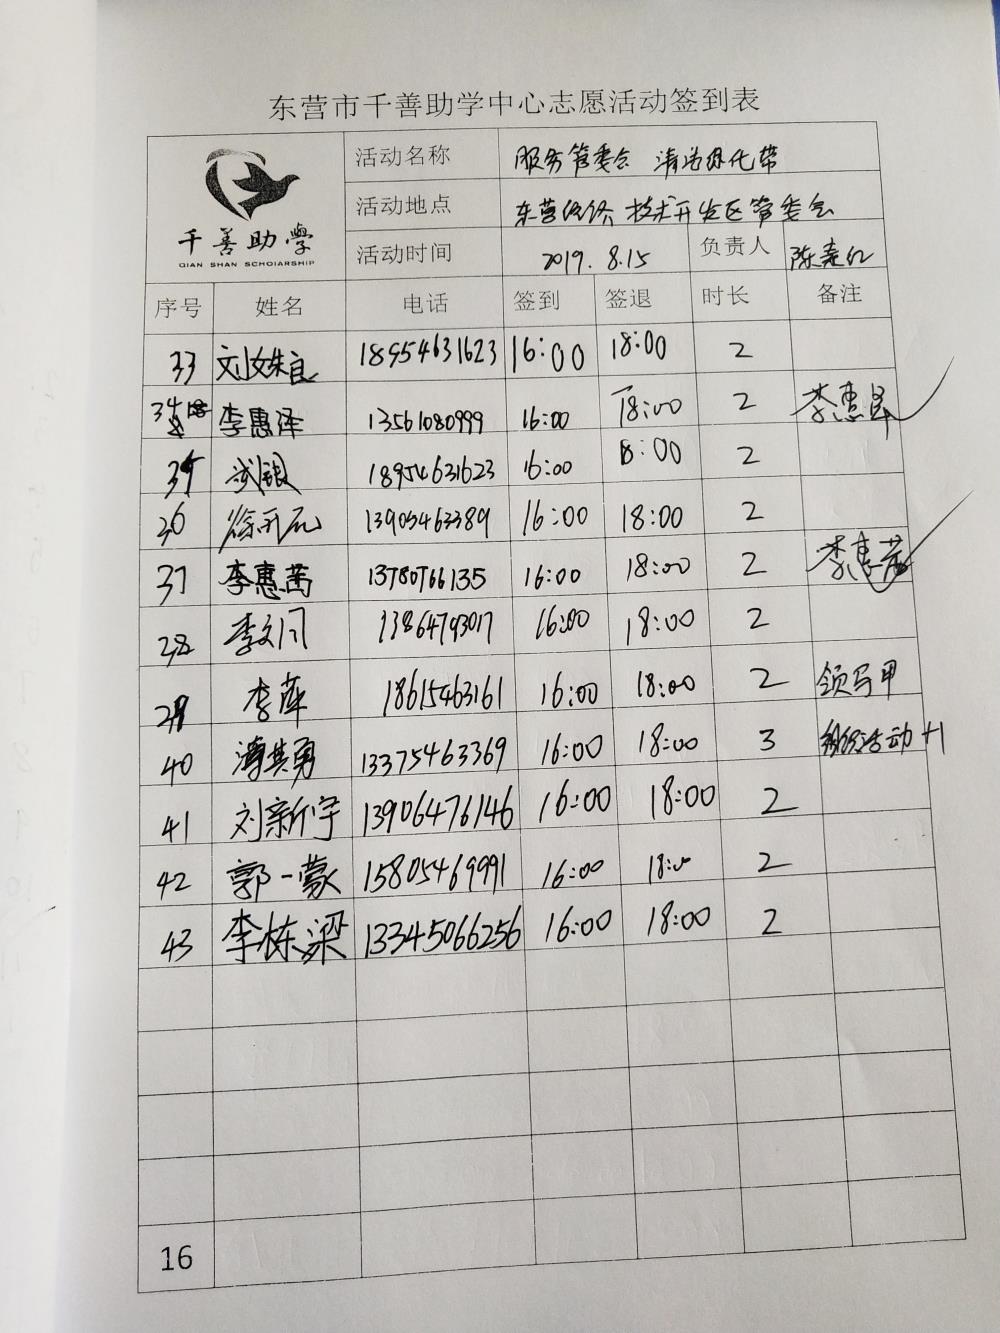 东营市千善助学中心志愿活动签到表
千善助學
QIAN SHAN SCHOIARSHIP
活动名称 服务管委会 清洁绿化带
活动地点 东营经济技术开发区管委会
活动时间 2019.8.15 负责人 陈寿红
序号 姓名 电话 签到 签退 时长 备注
33 刘姝良 18954631623 16:00 18:00 2
34 李惠泽 13561080999 16:00 18:00 2 李惠泽
35 18954631623 16:00 18:00 2
36 13905463389 16:00 18:00 2
37 李惠茜 13780766135 16:00 18:00 2 李惠茜
38 李文闩 13864793017 16:00 18:00 2
39 李萍 18615463161 16:00 18:00 2 领马甲
40 13375463369 16:00 18:00 3 组织活动+1
41 刘新宇 13906476146 16:00 18:00 2
42 郭一蒙 15805469991 16:00 18:00 2
43 李栋梁 13345066256 16:00 18:00 2
16